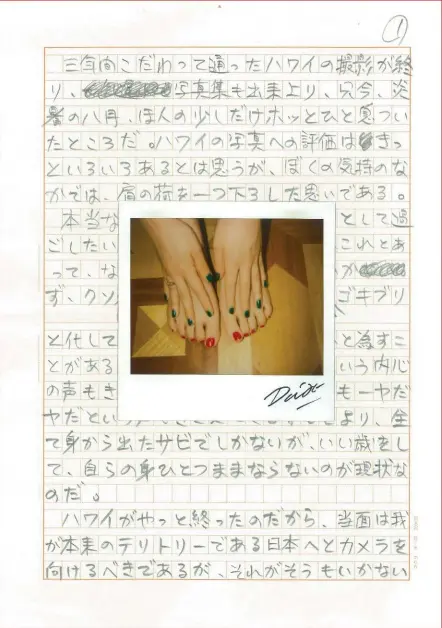 ①
三年間こだわって通ったハワイの撮影が終
り、写真集も出来上り、只今、炎
暑の八月、ほんの少しだけホッとひと息つい
たところだ。ハワイの写真への評価はきっ
といろいろあるとは思うが、ぼくの気持のな
かでは、肩の荷を一つ下ろした思いである。
本当な として過
ごしたい これとあ
って、な が
ず、クソ ゴキブリ
と代して と為すこ
とがある いう内心
の声もき もーヤだ
ヤだとい より、全
て身から出たサビでしかないが、いい歳をし
て、自らの身ひとつままならないのが現状な
のだ。
ハワイがやっと終ったのだから、当面は我
が本来のテリトリーである日本へとカメラを
向けるべきであるが、それがそうもいかない